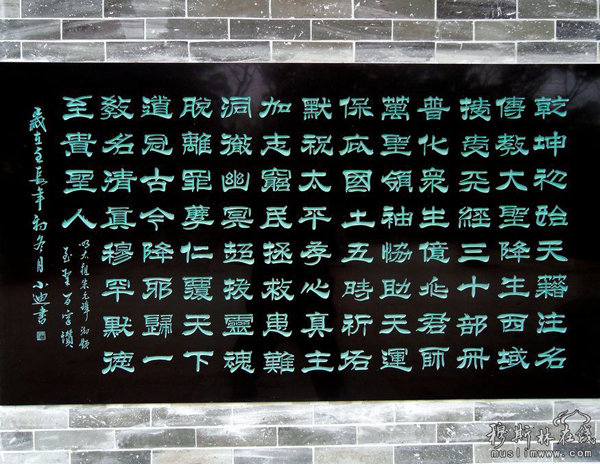 乾坤初始天籍注名
傳教大聖降生西域
授受天經三十部冊
普化衆生億兆君師
萬聖領袖協助天運
保庇國土五時祈祐
默祝太平存心真主
加志窮民拯救患難
洞徹幽冥超拔靈魂
脫離罪孽仁覆天下
道冠古今降邪歸一
教名清真穆罕默德
至貴聖人
明太祖朱元璋御題
至聖百字讚
歲在壬辰年初冬月小迪書
穆斯林在线
muslimwww.com